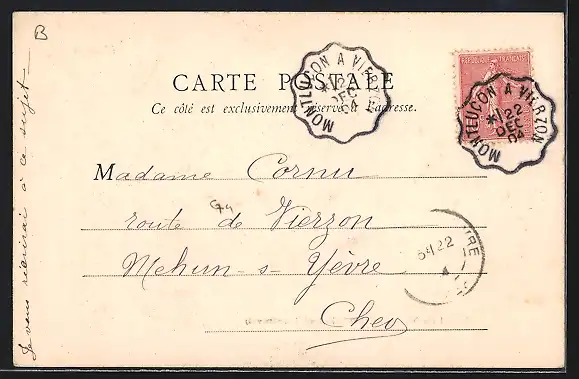 B
CARTE POSTALE
Ce côté est exclusivement réservé à l'adresse.
MONTLUÇON A VIERZON
22
DEC
04
REPUBLIQUE FRANÇAISE
MONTLUÇON A VIERZON
22
DEC
04
Madame Cornu
route de Vierzon
Mehun-s-Yèvre
Cher
22
Je vous écrirai à ce sujet